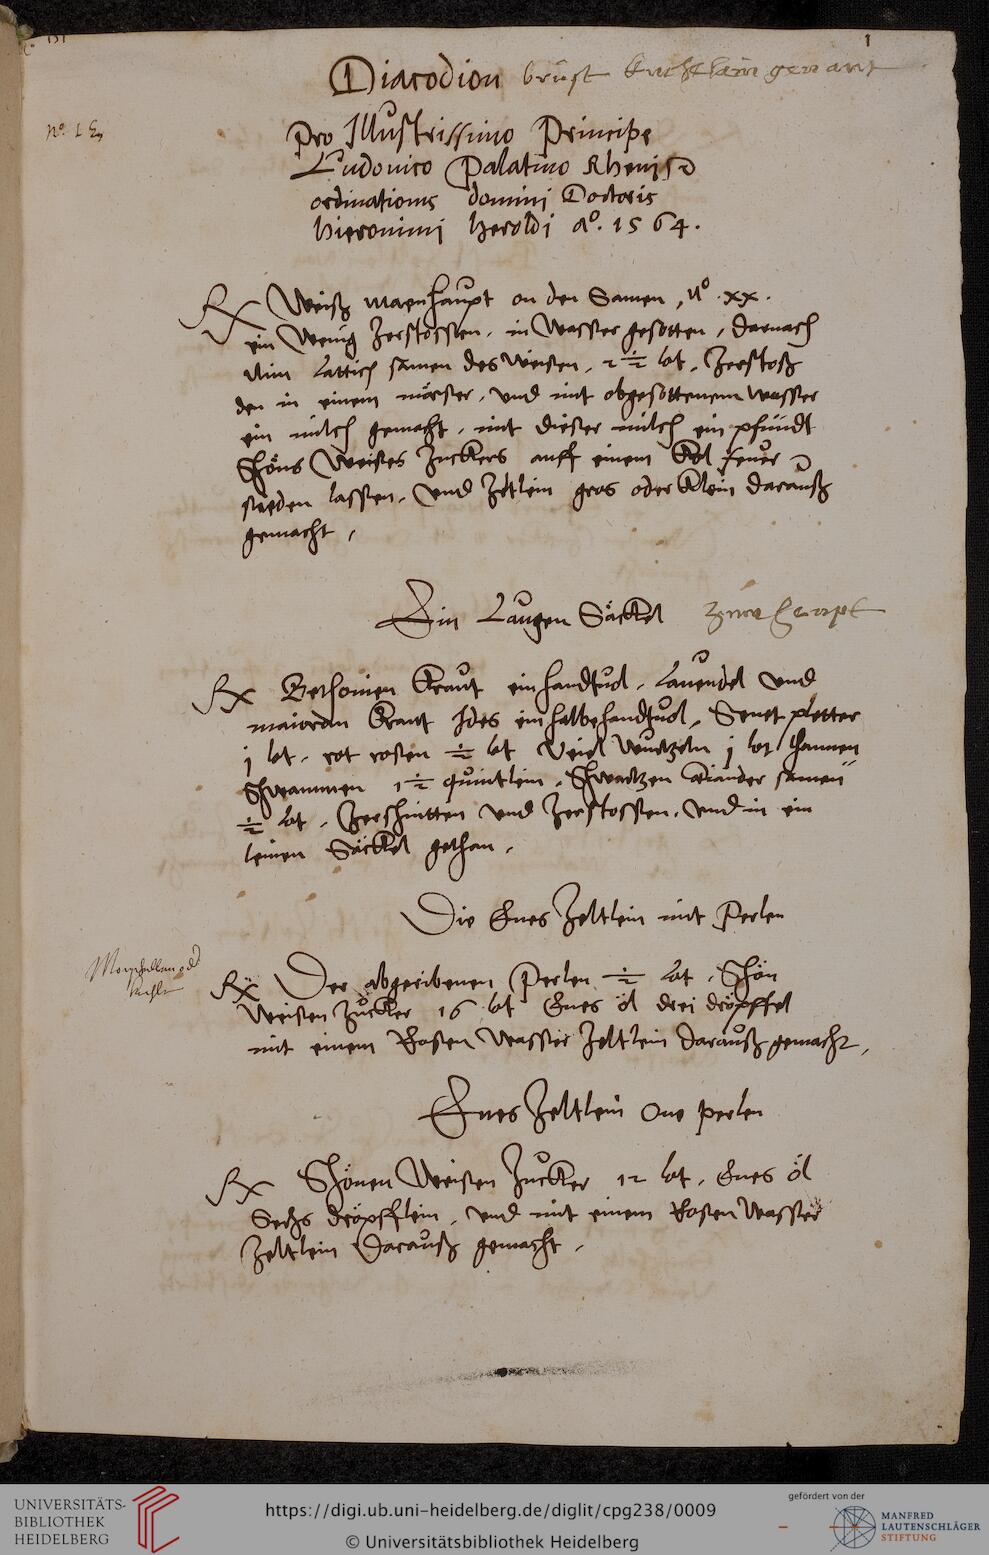 151
1
Diacodion brüst kuchlein genant
No. 1
Pro Illustrissimo Principe
Ludovico Palatino Rheni
ordinationis domini Doctoris
Hieronimi Heroldi Ao. 1564.
Rx Weiß maenhaupt on den Samen, No. xx.
ein wenig Zerstossen, in wasser gesotten, darnach
Nim Lattich samen des weisen, 2 ½ lot, Zerstoß
den in einem mörser, und mit obgesottenem wasser
ein milch gemacht, mit dieser milch ein pfundt
Schöns Weises Zuckers auff einem Kol feuer
sieden lassen, Und Zeltlein gros oder klein darauß
gemacht,
Ein Laugen Säckel zum haupt
Rx Bethonien Kraut ein handtvol, Lauendel und
maioran Kraut Jdes ein halbe handtvol, Senet pletter
j lot, rot rosen ½ lot Veiel wurtzeln j lot thannen
Schwammen 1 ½ quintlein, Schwartzen Coriander samen
½ lot, Zerschnitten und Zerstossen, und in ein
leinen Säckel gethan,
Die Enes Zeltlein mit Perlen
Rx Der abgeribenen Perlen ½ Lot, Schön
Weisen Zucker 16 lot Enes öl drei dröpffel
mit einem Rosen Wasser Zeltlein darauß gemacht,
Enes Zeltlein One perlen
Rx Schönen Weisen Zucker 12 lot, Enes öl
Sechs dröpfflein, und mit einem Rosen Wasser
Zeltlein Darauß gemacht,
UNIVERSITÄTS-
BIBLIOTHEK
HEIDELBERG
https://digi.ub.uni-heidelberg.de/diglit/cpg238/0009
© Universitätsbibliothek Heidelberg
gefördert von der
MANFRED
LAUTENSCHLÄGER
STIFTUNG